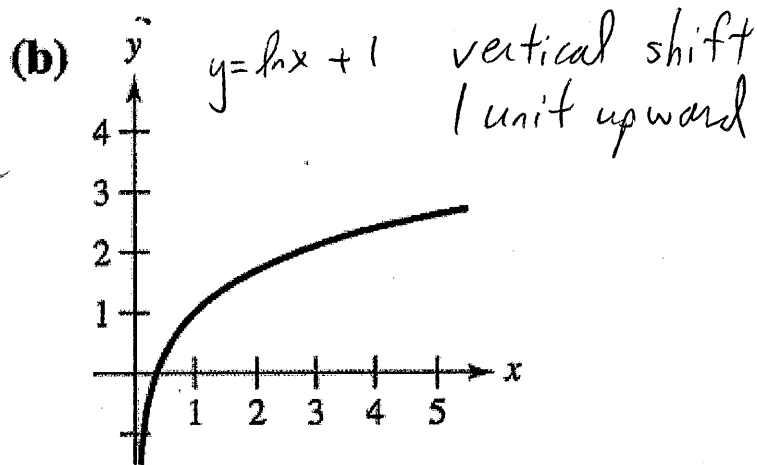 (b) y y = ln x + 1 vertical shift
1 unit upward
4
3
2
1
x
1 2 3 4 5